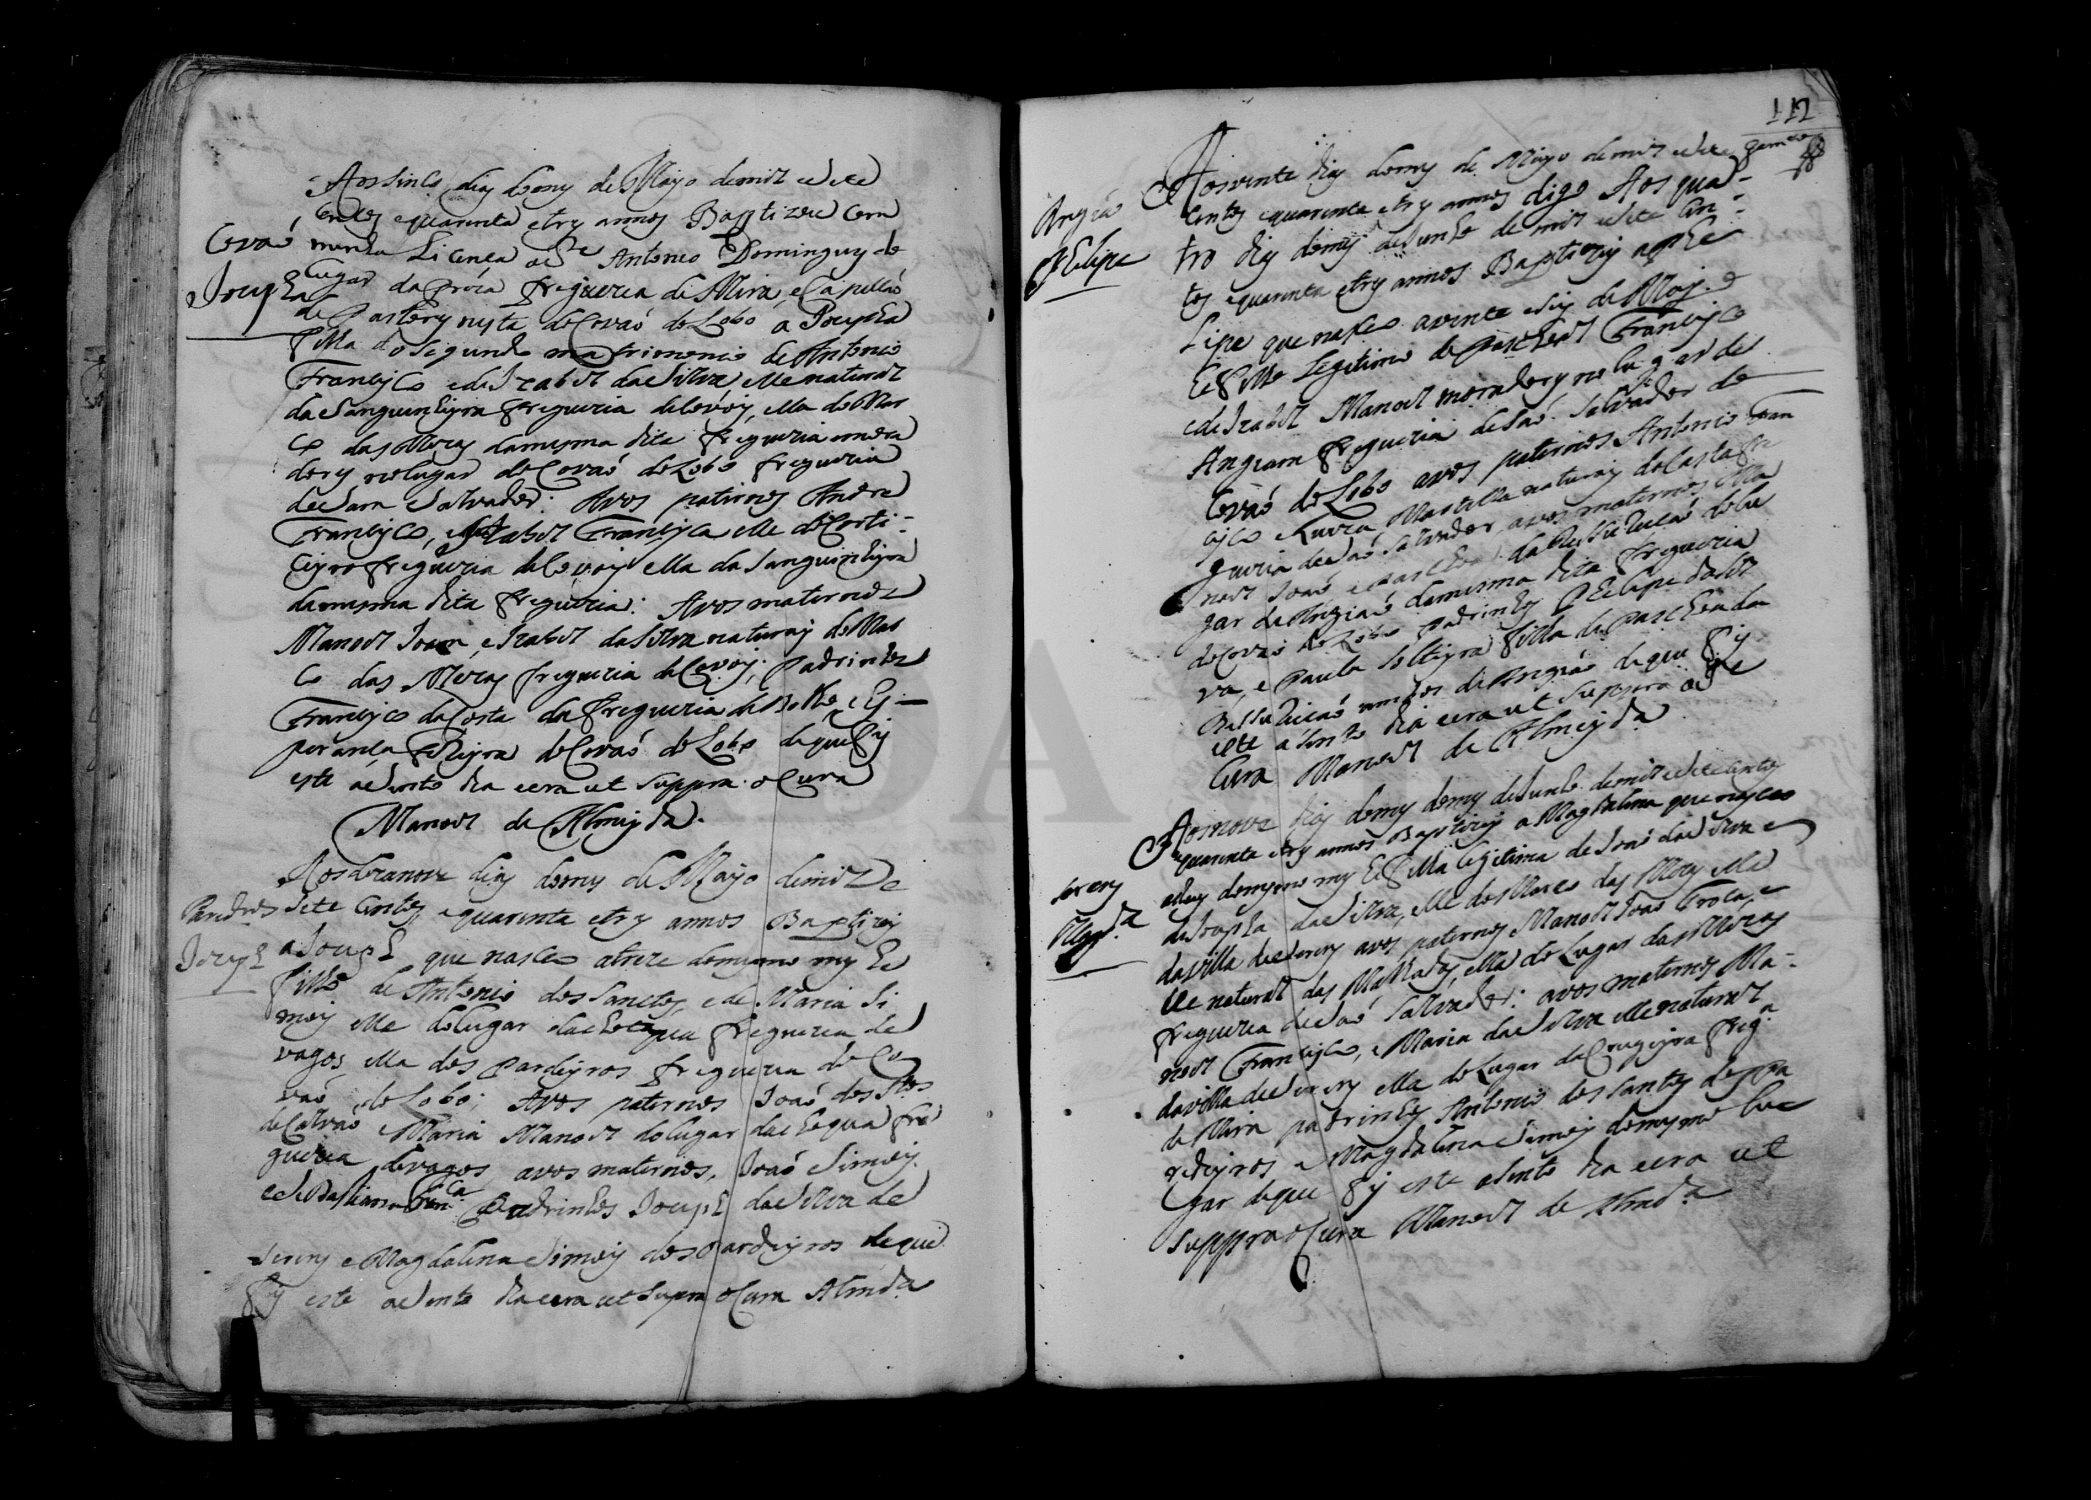 Aos sinco dias do mes de Mayo de mil e sete
centos e quarenta e tres annos Baptizou com
Covaõ
minha Licença o Pe Antonio Domingues do
Jousepha
lugar da freguezia de Mira, e Capellaõ
de de Covaõ de Lobo a Jousepha
filha do segundo matrimonio de Antonio
Francisco e de Izabel da Silva elle natural
da Sanguinheyra freguezia de Covoẽs, ella do Mar
co das Meras da mesma dita freguezia mora
dores no lugar do Covaõ do Lobo freguezia
de Sam Salvador: Avos paternos Andre
Francisco, e Izabel Francisca elle do Corti-
ceyro freguezia de Covoẽs ella da Sanguinheyra
da mesma dita freguezia: Avos maternos
Manoel Joam, e Izabel da Silva naturais do Mar
co das Meras freguezia de Covoẽs; Padrinhos
Francisco da Costa da freguezia de e Es-
perança do Covaõ do Lobo de que fis
este asento dia e era ut suppra o Cura
Manoel de Almeyda.
Aos dezanove dias do mes de Mayo de mil e
Pardeiros
sete centos e quarenta e tres annos Baptizei
Jouseph
a Jouseph que nasceo a treze do mesmo mes he
filho de Antonio dos Sanctos, e de Maria Si
moẽs elle do lugar da freguezia de
vagos ella dos Pardeyros freguezia do Co
vaõ do Lobo; Avos paternos Joaõ dos Stos
de Calvaõ e Maria Manoel do lugar da fre
guezia de vagos avos maternos, Joaõ Simoẽs
e Bastiana Franca Padrinhos Jouseph da Silva de
Serem e Magdalena Simoẽs dos Pardeyros de que
fis este asento dia e era ut supra o Cura Almda
112
Aos vinte dias do mes de Mayo de mil e sete
Angiaõ
centos e quarenta e tres annos digo Aos qua-
Phelipe
tro dias do mes de Junho de mil e sete cen-
tos e quarenta e tres annos Baptizei a Phe
lipe que nasceo a vinte e seis de Mayo
he filho Legitimo de Paschoal Francisco
e de Izabel Manoel moradores no lugar de
Angiam freguezia de Saõ Salvador do
Covaõ do Lobo avos paternos Antonio Fran
cisco e Luzia naturais do
guezia de Saõ Salvador, avos maternos Ma
noel Joaõ, e da do lu
gar de Angiaõ da mesma dita freguezia
do Covaõ do Lobo Padrinhos Phelipe da Sil
va, e Paula solteyra filha de Paschoa da
ambos de Angiaõ de que fis
este asento dia e era ut suppra o
Cura Manoel de Almeyda
Aos nove dias do mes de Junho de mil e sete centos
e quarenta e tres annos Baptizei a Magdalena que nasceo
do mesmo mes he filha legitima de Joaõ da Silva e
Magda
de Jousepha da Silva, elle do Marco das Meras ella
da villa de Serem avos paternos Manoel Joaõ
elle natural das ella do Lugar das Meras
freguezia de Saõ Salvador: avos maternos Ma-
noel Francisco, e Maria da Silva elle natural
da villa de Serem ella do Lugar da Corugeyra frega
de Mira padrinhos Antonio dos Santos dos Pa
rdeyros e Magdalena Simoẽs do mesmo lu
gar de que fis este asento dia e era ut
suppra o Cura Manoel de Almda